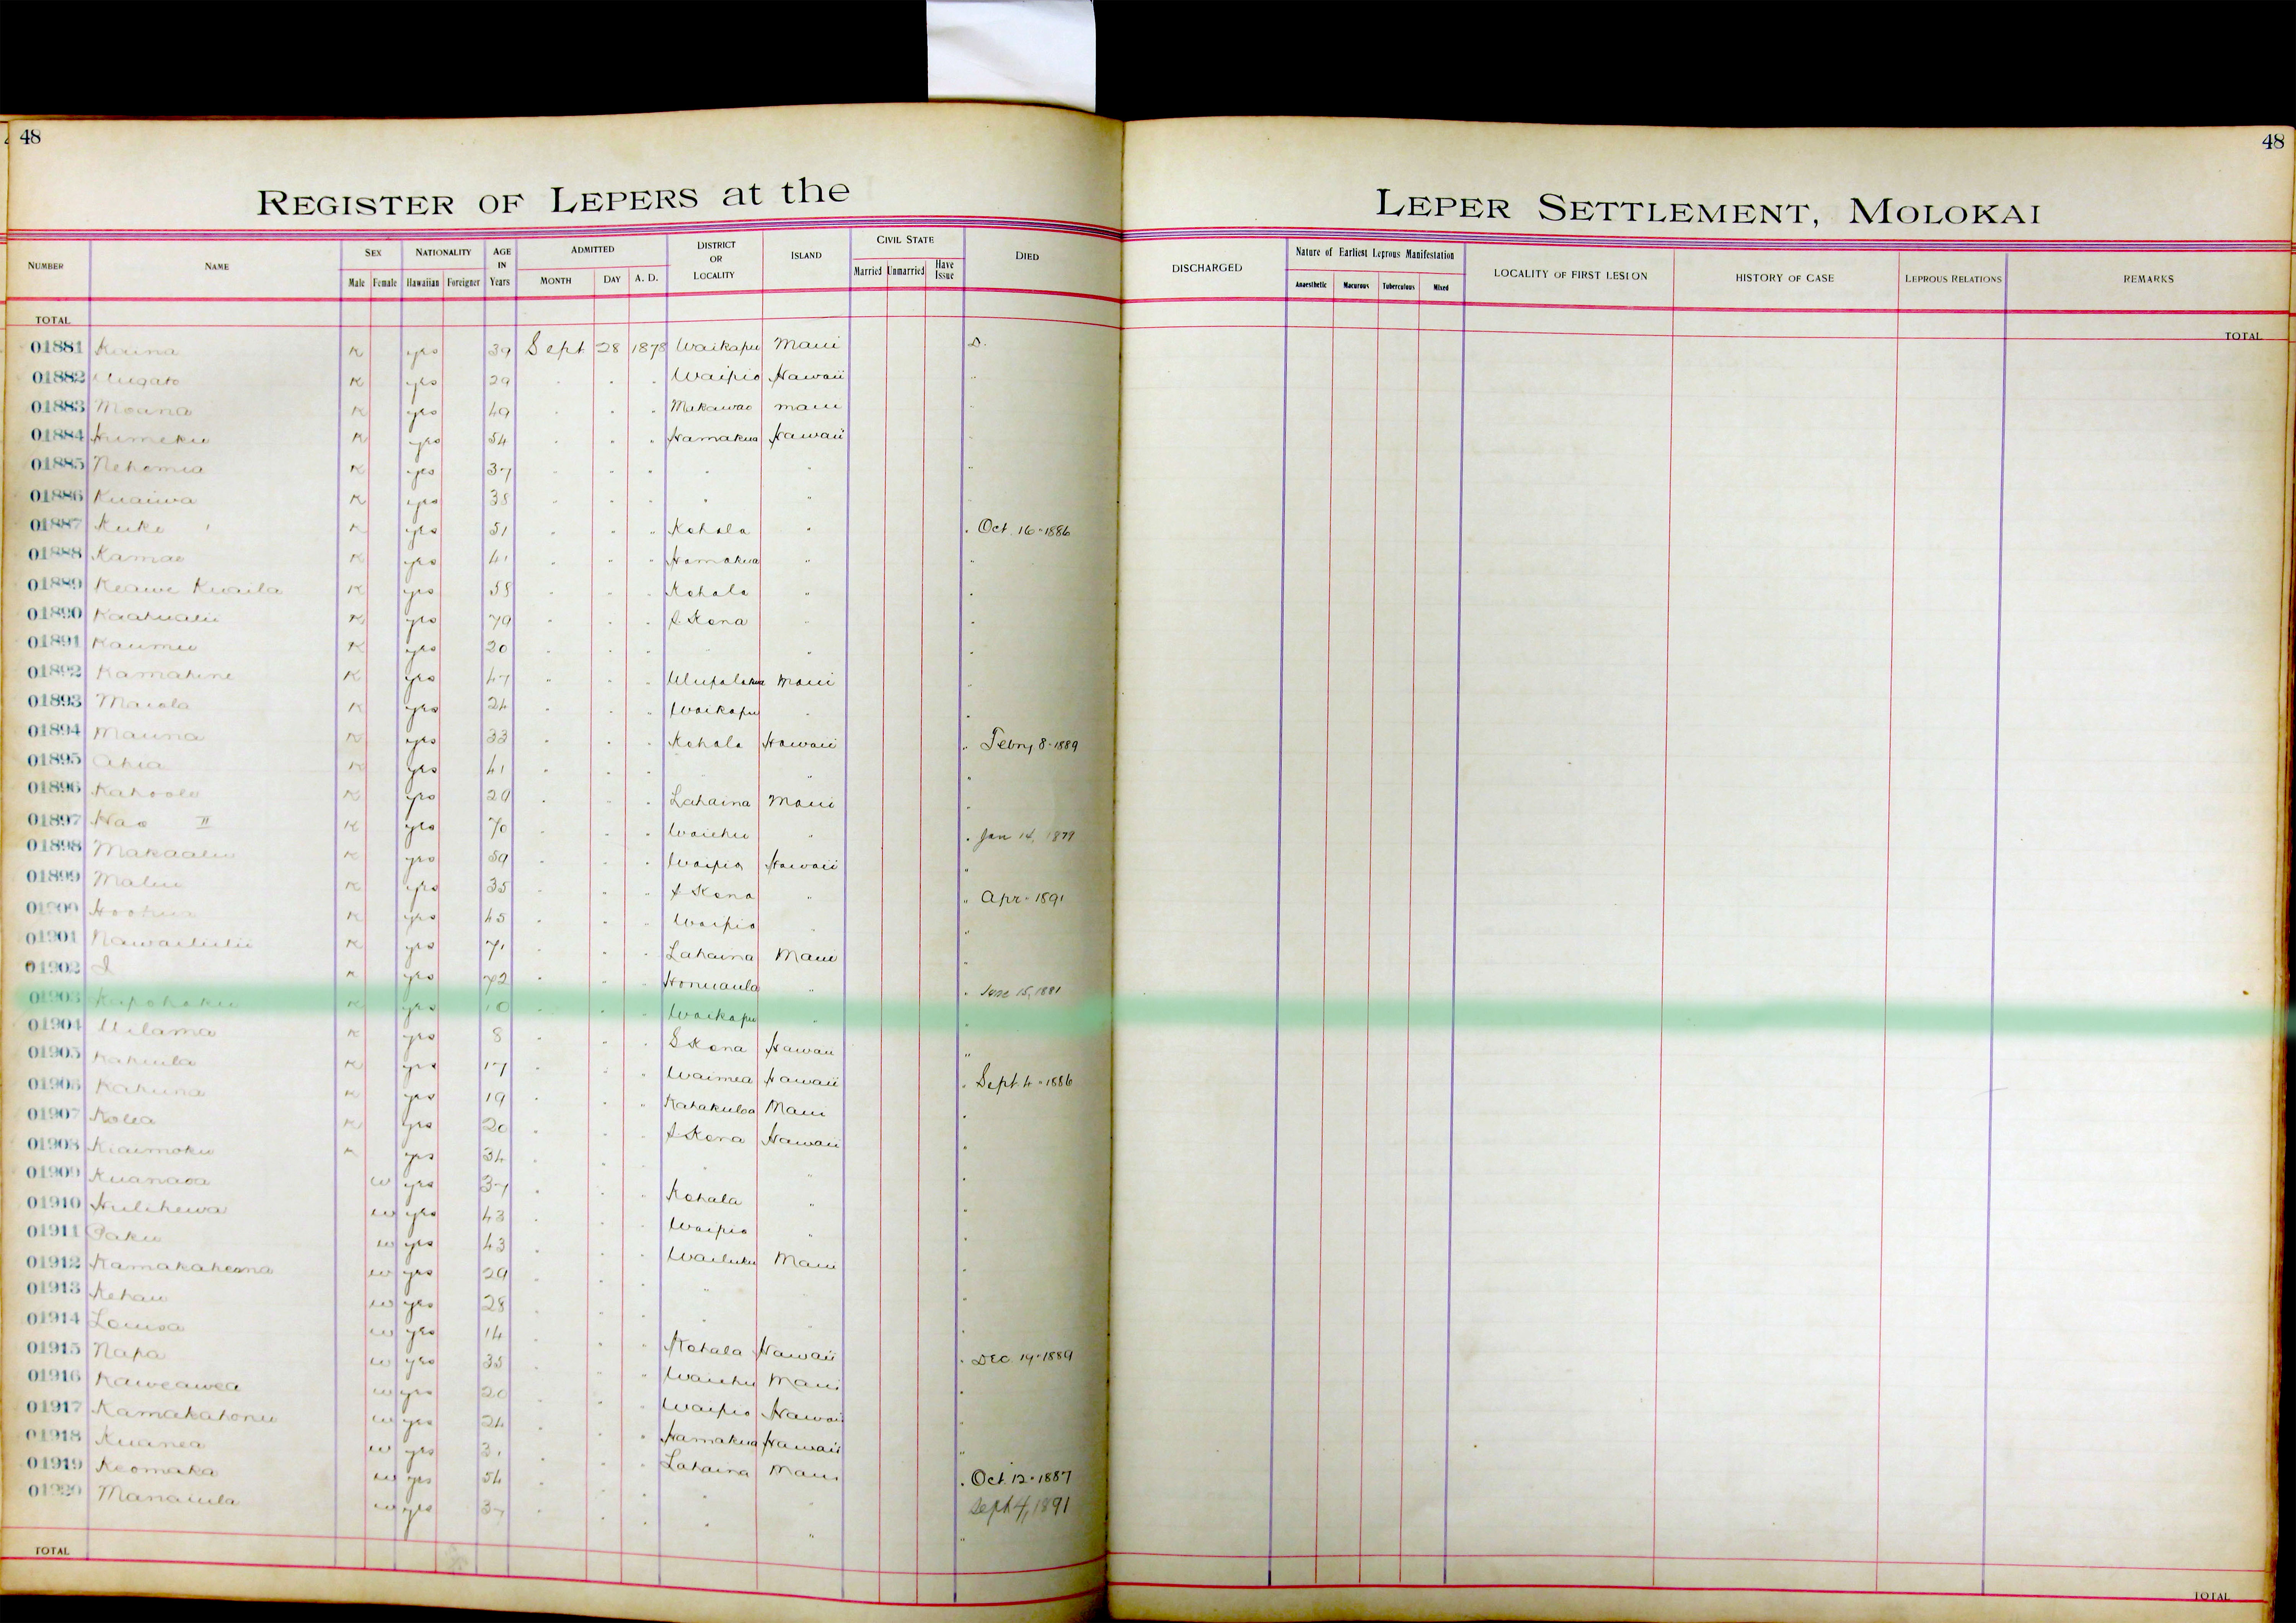 48
48
REGISTER OF LEPERS at the
LEPER SETTLEMENT, MOLOKAI
NUMBER NAME SEX NATIONALITY AGE IN Years ADMITTED DISTRICT OR LOCALITY ISLAND CIVIL STATE DIED DISCHARGED Nature of Earliest Leprous Manifestation LOCALITY OF FIRST LESION HISTORY OF CASE LEPROUS RELATIONS REMARKS
Male Female Hawaiian Foreigner MONTH DAY A. D. Married Unmarried Have Issue Anaesthetic Macurous Tuberculous Mixed
TOTAL TOTAL
01881 K yes 39 Sept 28 1878 Waikapu Maui D.
01882 K yes 29 " " " Waipio Hawaii "
01883 Moana K yes 49 " " " Makawao Maui "
01884 Humeku K yes 54 " " " Hamakua Hawaii "
01885 Nehemia K yes 37 " " " " " "
01886 Kuaiwa K yes 38 " " " " " "
01887 Kuke K yes 51 " " " Kohala " " Oct. 16-1886
01888 Kamao K yes 41 " " " Hamakua " "
01889 Keawe Kuaila K yes 58 " " " Kohala " "
01890 Kaahualii K yes 79 " " " S Kona " "
01891 Kaumu K yes 20 " " " " " "
01892 Kamahine K yes 47 " " " Ulupalakua Maui "
01893 Maiola K yes 24 " " " Waikapu " "
01894 Mauna K yes 33 " " " Kohala Hawaii " Febry 8-1889
01895 Ahia K yes 41 " " " " " "
01896 Kahoole K yes 29 " " " Lahaina Maui "
01897 Hao II K yes 70 " " " Waiehu " " Jan 14, 1879
01898 Makaalu K yes 59 " " " Waipio Hawaii "
01899 Malui K yes 35 " " " S Kona " " Apr. 1891
01900 Hoohua K yes 45 " " " Waipio " "
01901 Nawailiilii K yes 71 " " " Lahaina Maui "
01902 I K yes 72 " " " Honuaula " " June 15, 1881
01903 Kapohaku K yes 10 " " " Waikapu " "
01904 Uilama K yes 8 " " " S Kona Hawaii "
01905 Kahiula K yes 17 " " " Waimea Hawaii " Sept. 4-1886
01906 Kahuna K yes 19 " " " Kahakuloa Maui "
01907 Kolea K yes 20 " " " S Kona Hawaii "
01908 Kiaimoku K yes 34 " " " " " "
01909 Kuanaoa w yes 37 " " " Kohala " "
01910 Hulihewa w yes 43 " " " Waipio " "
01911 Paku w yes 43 " " " Wailuku Maui "
01912 Kamakaheona w yes 29 " " " " "
01913 Kehau w yes 28 " " " " "
01914 Louisa w yes 14 " " " Kohala Hawaii " Dec. 19-1889
01915 Napa w yes 35 " " " Waiehu Maui "
01916 Kaweawea w yes 20 " " " Waipio Hawaii "
01917 Kamakahonu w yes 24 " " " Hamakua Hawaii "
01918 Kuanea w yes 31 " " " Lahaina Maui " Oct 12-1887
01919 Keomaka w yes 54 " " " " " Sept 4, 1891
01920 Manaiula w yes 37 " " " " " "
TOTAL TOTAL